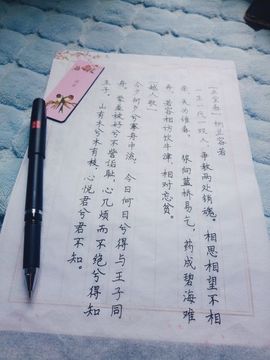 《画堂春》纳兰容若
一生一代一双人，争教两处销魂。相思相望不相
亲，天为谁春。浆向蓝桥易乞，药成碧海难
奔。若容相访饮牛津，相对忘贫。
《越人歌》
今夕何夕兮搴舟中流，今日何日兮得与王子同
舟。蒙羞被好兮不訾诟耻，心几烦而不绝兮得知
王子。山有木兮木有枝，心悦君兮君不知。